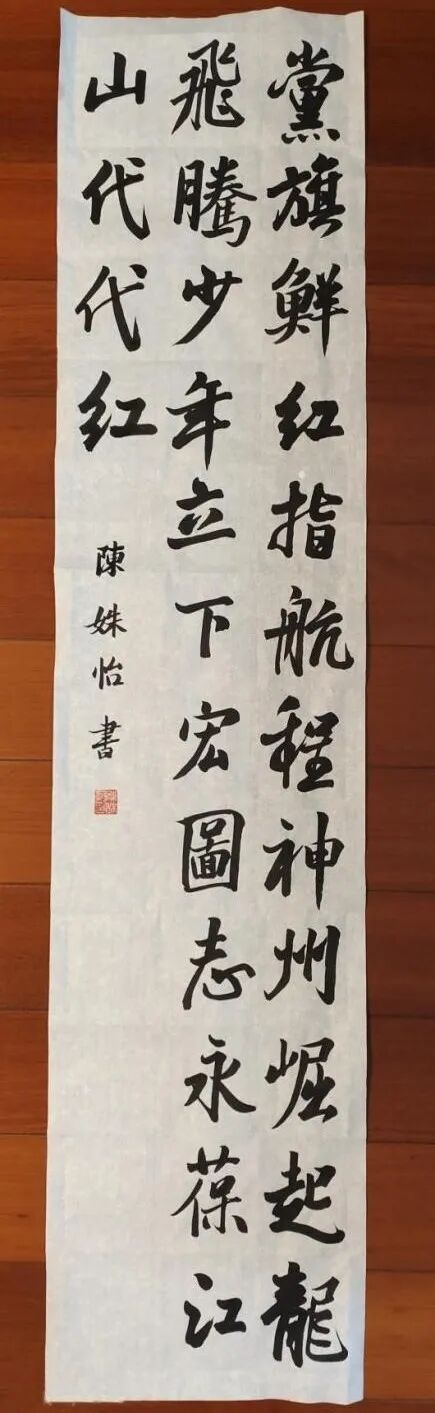 黨旗鮮红指航程神州崛起龍
飛騰少年立下宏圖志永葆江
山代代红
陳姝怡書